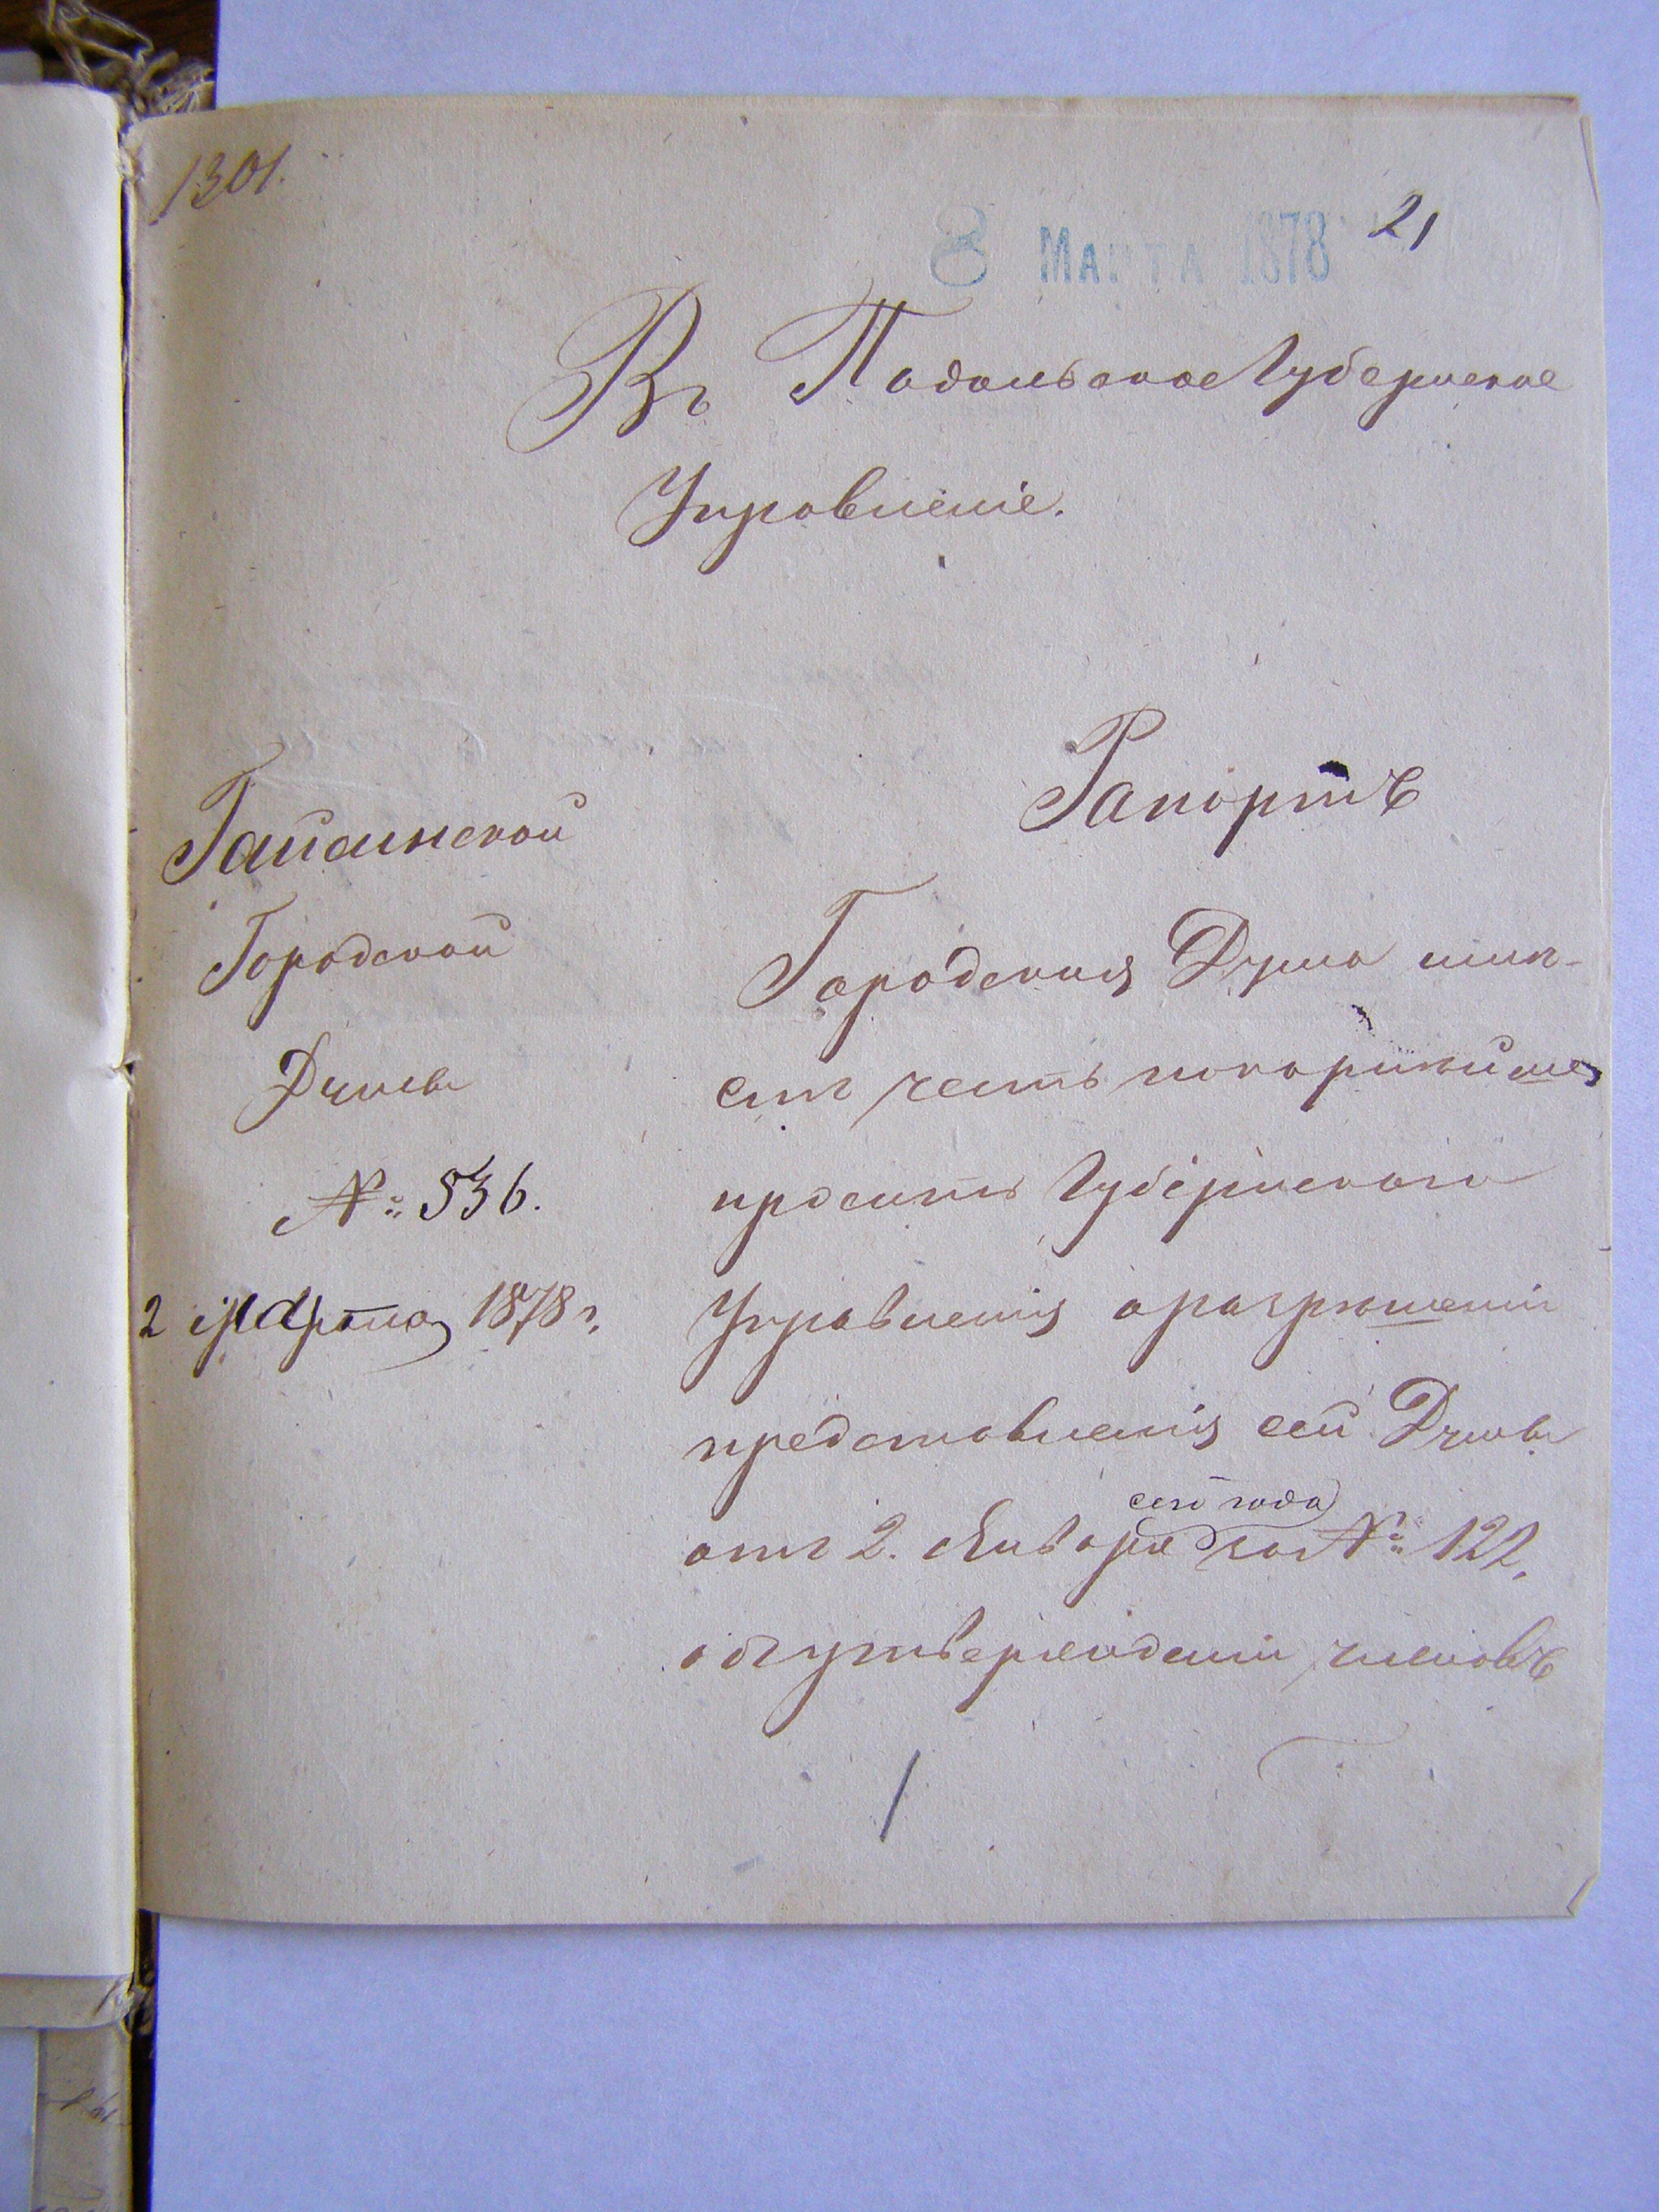 1301.
8 МАРТА 1878
21
Въ Подольское Губернское
Управленіе.
Рапортъ
Гайсинской
Городской
Думы
№ 536.
2 Марта 1878 г.
Городская Дума имѣ-
етъ честь покорнѣйше
просить Губернскаго
Управленія о разрѣшеніи
представленія сей Думы
сего года
отъ 2. Января за № 122,
объ утвержденіи членовъ